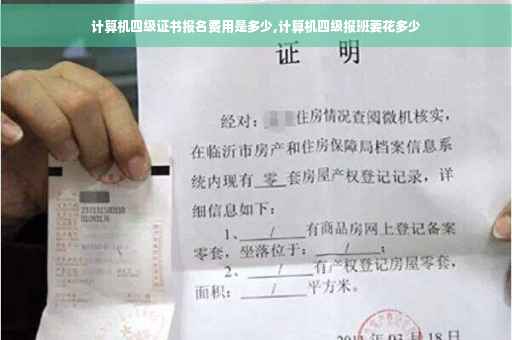 计算机四级证书报名费用是多少,计算机四级报班要花多少
证 明
经对: 住房情况查阅微机核实,
在临沂市房产和住房保障局档案信息系
统内现有 零 套房屋产权登记记录,详
细信息如下:
1、 / 有商品房网上登记备案
零套,坐落位于: / ;
2、 / 有产权登记房屋零套,
面积: / 平方米。
03月18日